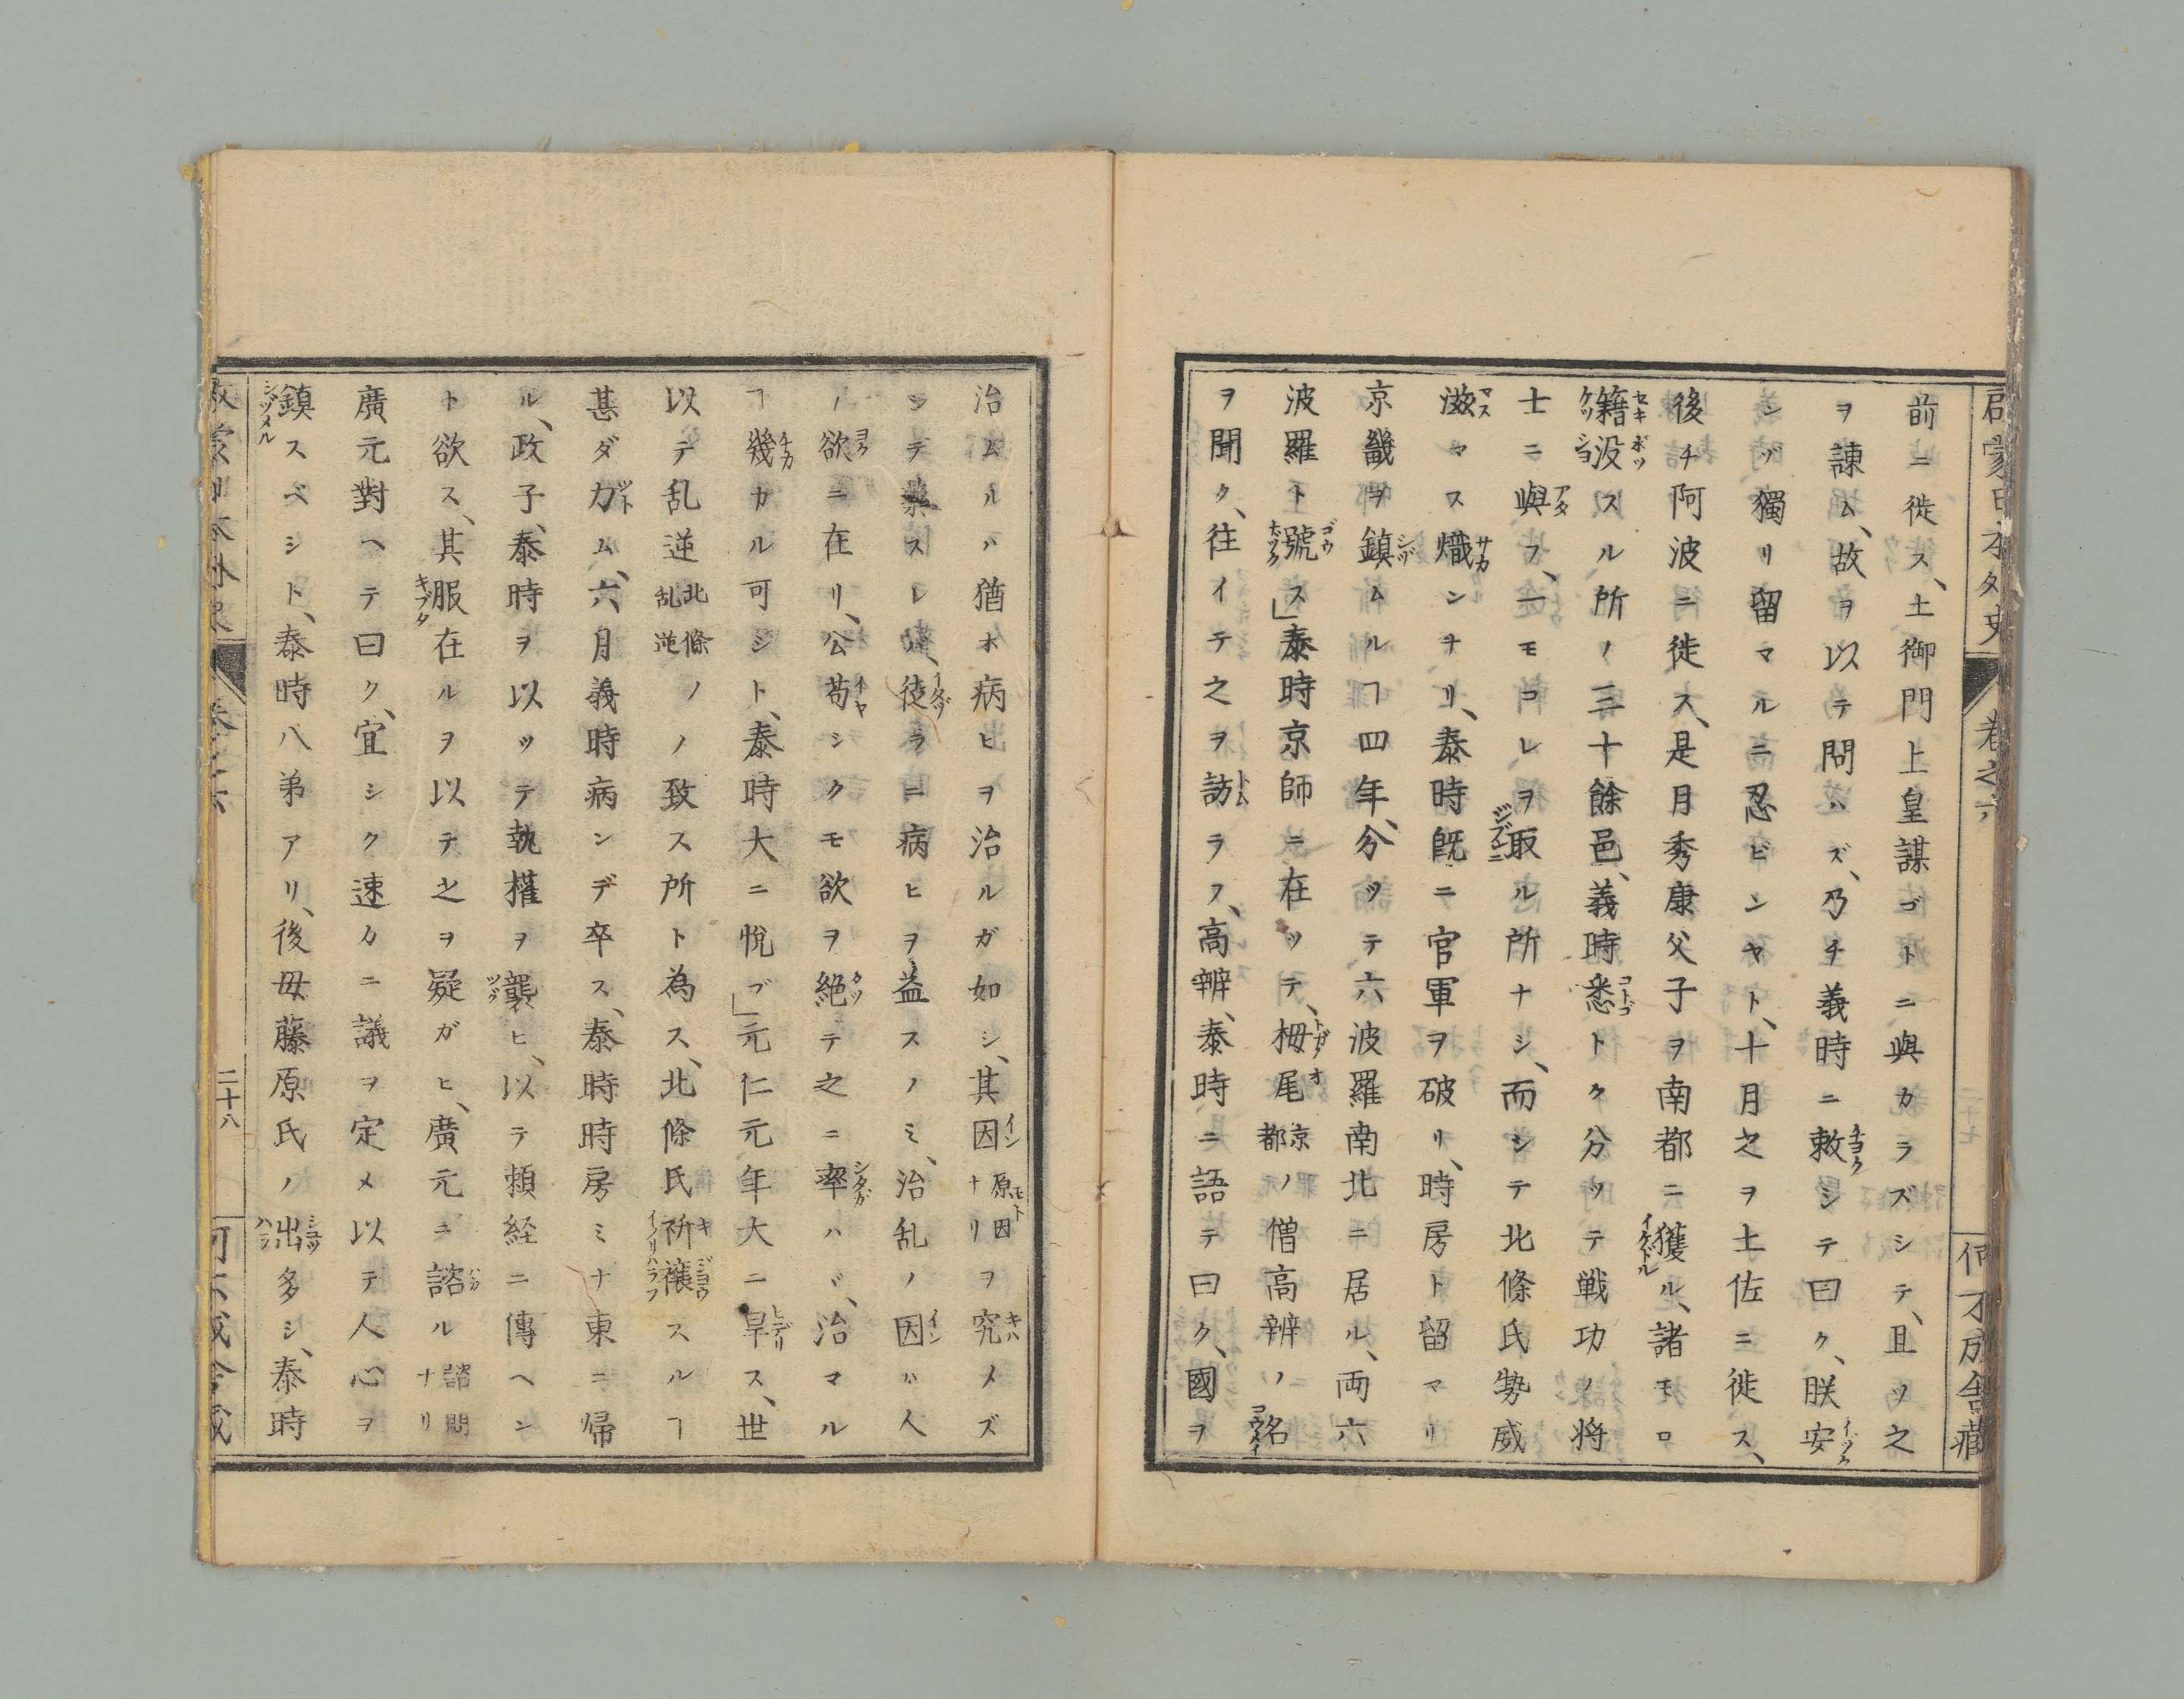 啓蒙日本外史 巻之六 何不成舎藏
前ニ徙ス、土御門上皇謀ゴトニ與カラズシテ、且ツ之
ヲ諌ム、故ヲ以テ問ハズ、乃チ義時ニ敕シテ曰ク、朕安
シゾ獨リ留マルニ忍ビンヤト、十月之ヲ土佐ニ徙ス、
後チ阿波ニ徙ス、是月秀康父子ヲ南都ニ獲ル、諸モロ
籍没スル所ノ三十餘邑、義時悉トク分ツテ戦功ノ将
士ニ與フ、一モコレヲ取ル所ナシ、而シテ北條氏勢威
滋マス熾ンナリ、泰時既ニ官軍ヲ破リ、時房ト留マリ
京畿ヲ鎮ムルヿ四年、分ツテ六波羅南北ニ居ル、両六
波羅ト號ス」泰時京師ニ在ツテ、栂尾京都ノ僧高辨ノ名
ヲ聞ク、往イテ之ヲ訪ラフ、高辨、泰時ニ語テ曰ク、國ヲ
治ムルハ猶ホ病ヒヲ治ルガ如シ、其因原因ナリヲ究メズ
シテ薬スレ𪜈、徒ラニ病ヒヲ益スノミ、治乱ノ因ハ人
ノ欲ニ在リ、公苟シクモ欲ヲ絶テ之ニ率ハバ、治マル
ヿ幾カル可シト、泰時大ニ悦ブ」元仁元年大ニ旱ス、世
以テ乱逆北條乱逆ノノ致ス所ト為ス、北條氏祈禳スルヿ
甚ダ力ム、六月義時病ンデ卒ス、泰時時房ミナ東ニ帰
ル、政子、泰時ヲ以ツテ執権ヲ襲ヒ、以テ頼経ニ傳ヘン
ト欲ス、其服在ルヲ以テ之ヲ疑ガヒ、廣元ニ諮ル諮問ナリ
廣元對ヘテ曰ク、宜シク速カニ議ヲ定メ以テ人心ヲ
鎮スベシト、泰時八弟アリ、後母藤原氏ノ出多シ、泰時
二十八